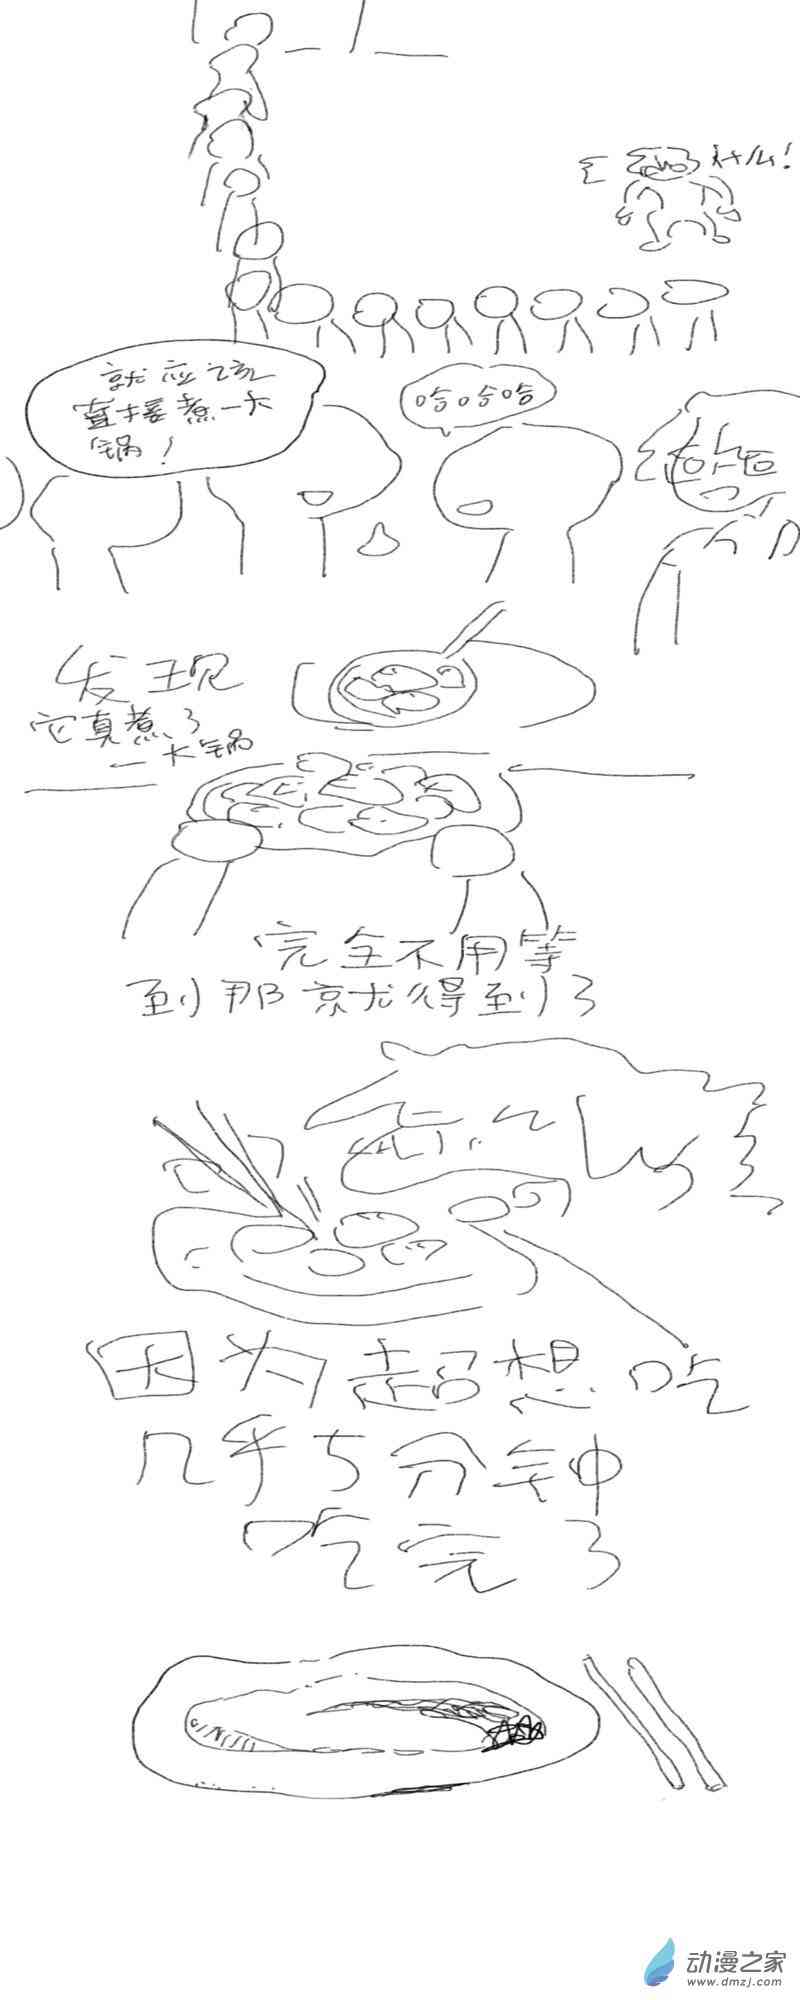 什么！
就应该
直接煮一大
锅！
哈哈哈
发现
它真煮了
一大锅
完全不用等
到那就得到了
因为超想吃
几乎5分钟
吃完了
动漫之家
www.dmzj.com